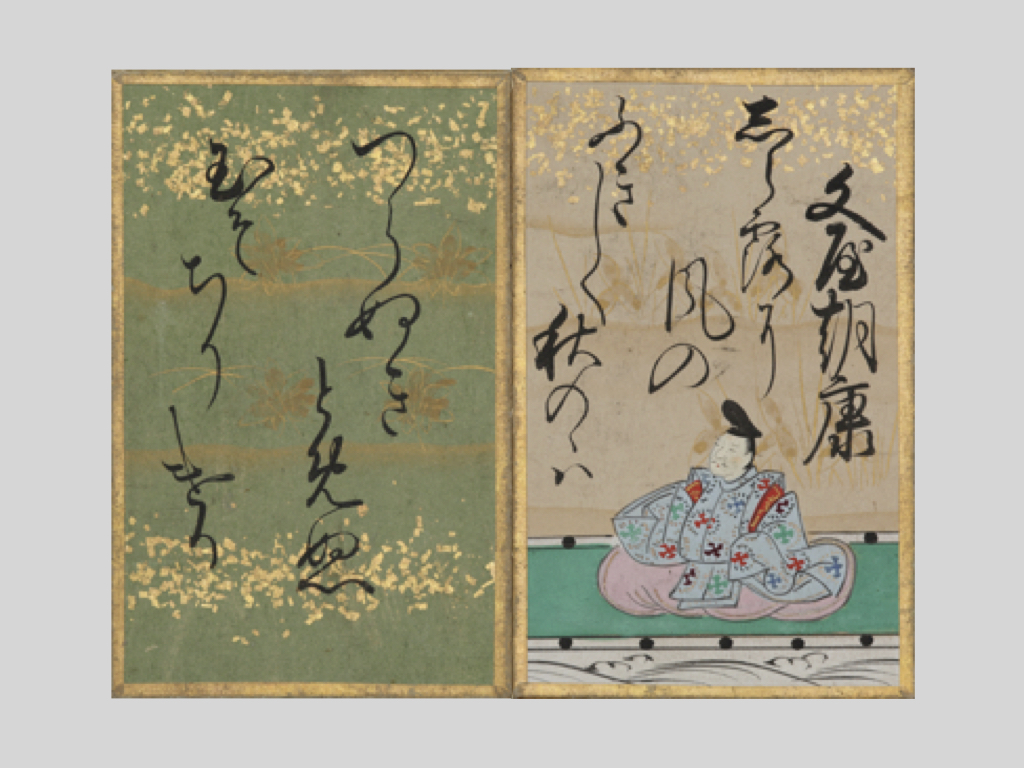 文屋朝康
しら露に
風の
ふきしく秋のゝハ
つらぬき
とめぬ
玉そ
ちりける